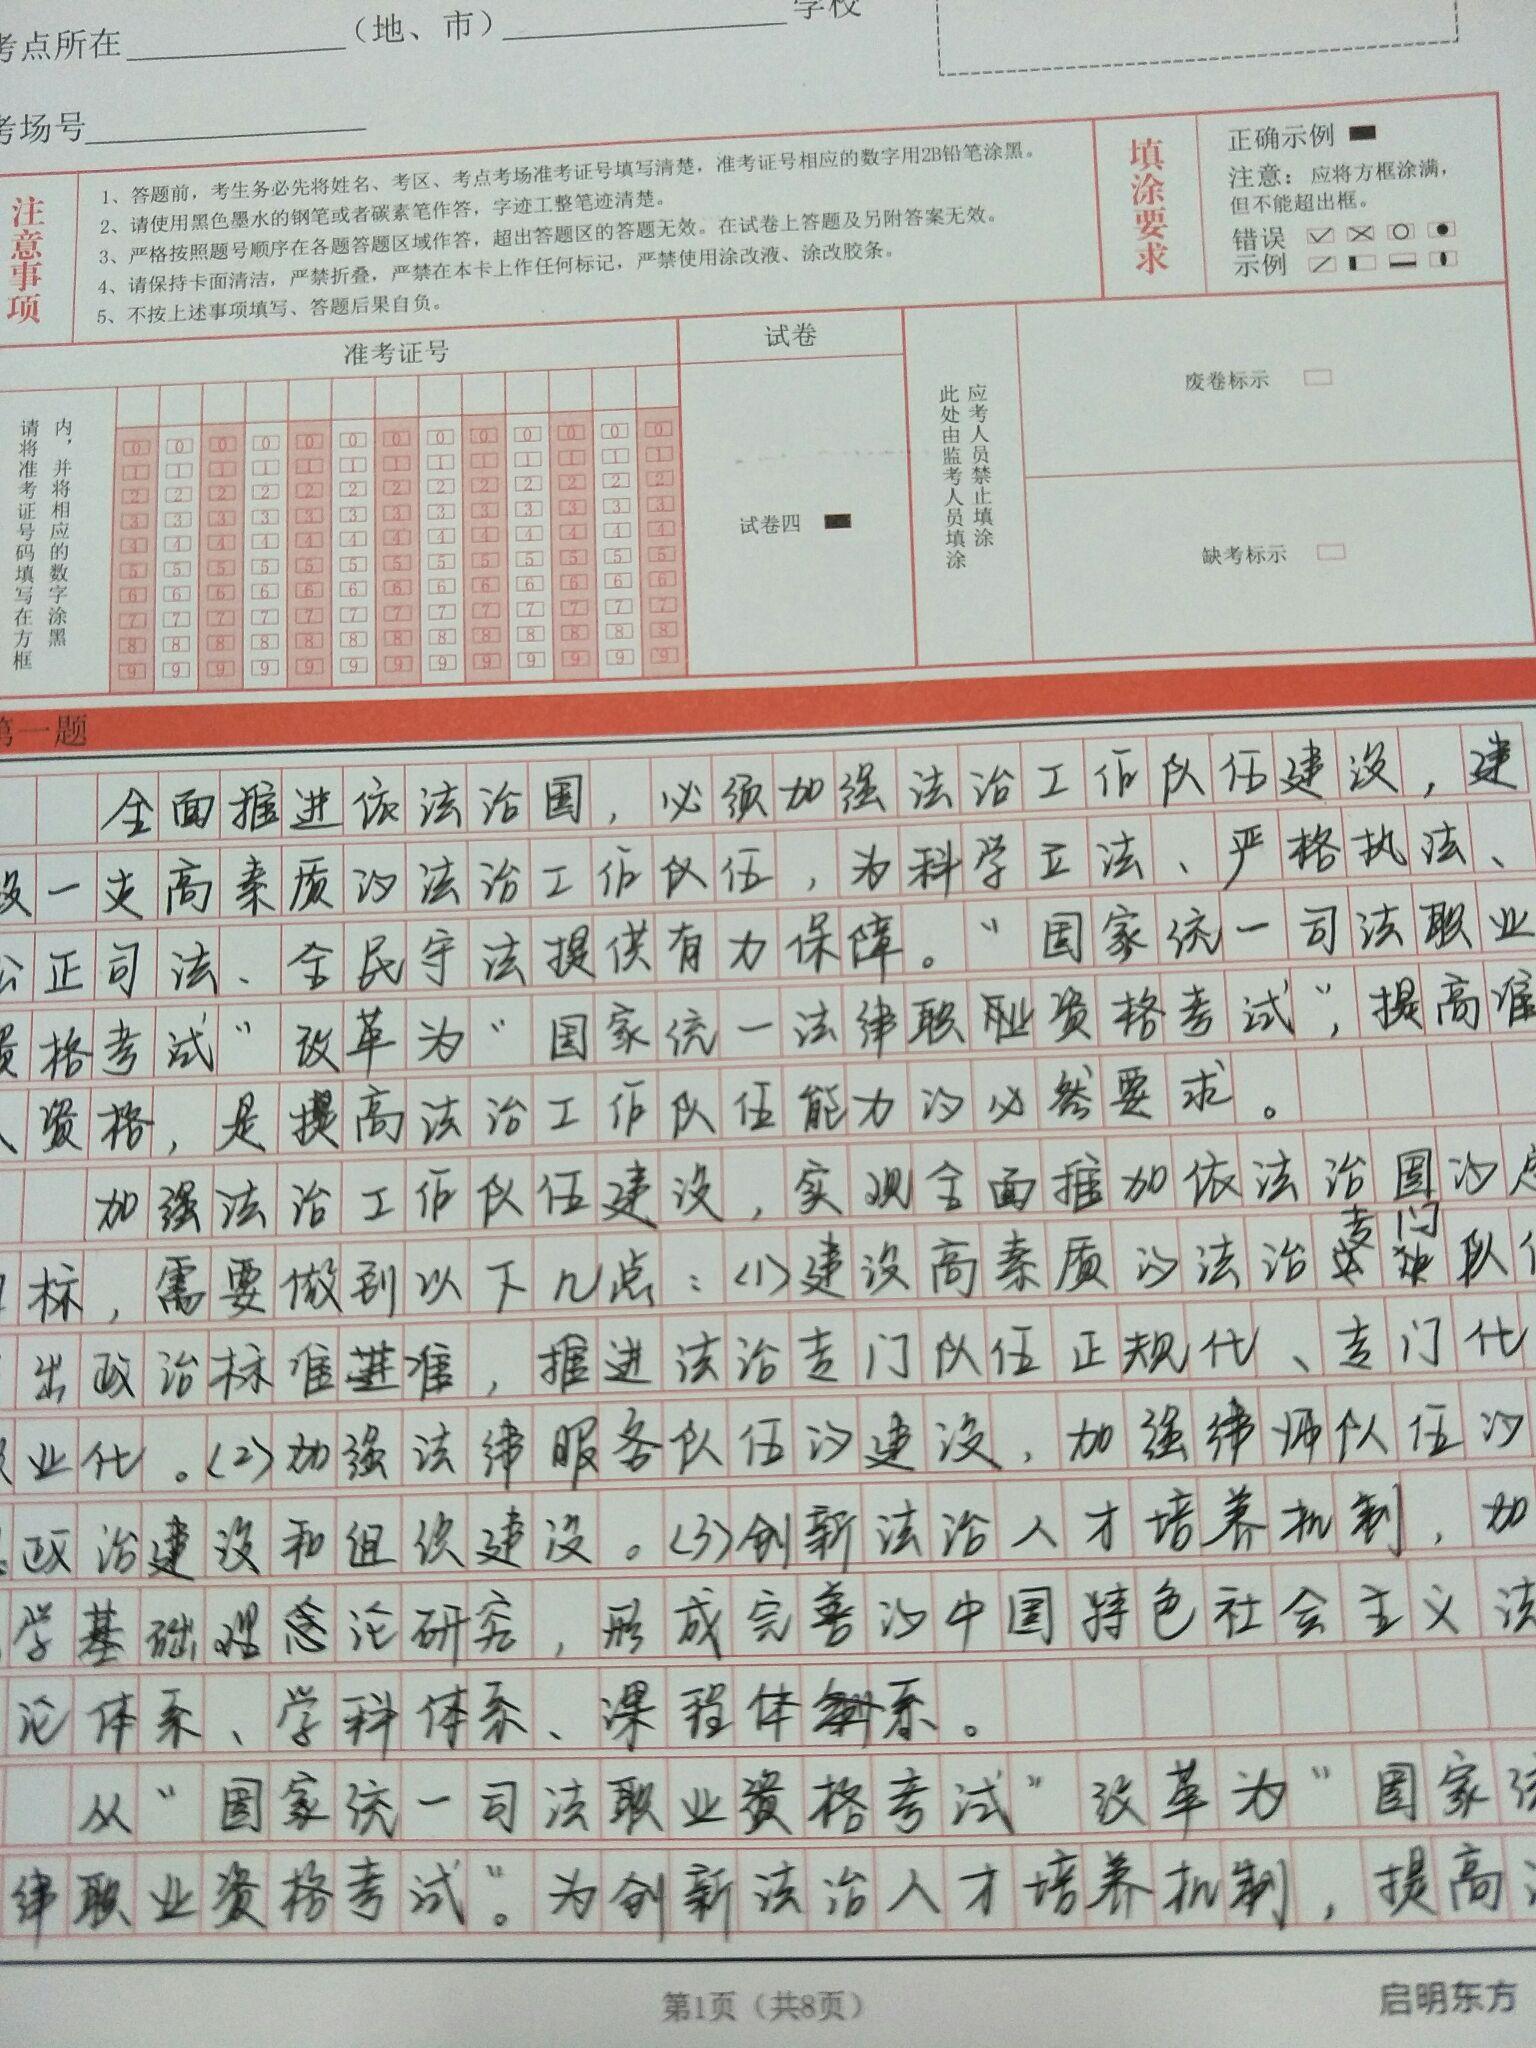 考点所在 （地、市） 学校
考场号
注意事项
1、答题前，考生务必先将姓名、考区、考点考场准考证号填写清楚，准考证号相应的数字用2B铅笔涂黑。
2、请使用黑色墨水的钢笔或者碳素笔作答，字迹工整笔迹清楚。
3、严格按照题号顺序在各题答题区域作答，超出答题区的答题无效。在试卷上答题及另附答案无效。
4、请保持卡面清洁，严禁折叠，严禁在本卡上作任何标记，严禁使用涂改液、涂改胶条。
5、不按上述事项填写、答题后果自负。
填涂要求
正确示例
注意：应将方框涂满，
但不能超出框。
错误
示例
准考证号
请将准考证号码填写在方框
内，并将相应的数字涂黑
0 0 0 0 0 0 0 0 0 0 0 0 0
1 1 1 1 1 1 1 1 1 1 1 1 1
2 2 2 2 2 2 2 2 2 2 2 2 2
3 3 3 3 3 3 3 3 3 3 3 3 3
4 4 4 4 4 4 4 4 4 4 4 4 4
5 5 5 5 5 5 5 5 5 5 5 5 5
6 6 6 6 6 6 6 6 6 6 6 6 6
7 7 7 7 7 7 7 7 7 7 7 7 7
8 8 8 8 8 8 8 8 8 8 8 8 8
9 9 9 9 9 9 9 9 9 9 9 9 9
试卷
试卷四
此处由监考人员填涂
应考人员禁止填涂
废卷标示
缺考标示
第一题
全面推进依法治国，必须加强法治工作队伍建设，建
设一支高素质的法治工作队伍，为科学立法、严格执法、
公正司法、全民守法提供有力保障。"国家统一司法职业
资格考试"改革为"国家统一法律职业资格考试"，提高准
入资格，是提高法治工作队伍能力的必然要求。
加强法治工作队伍建设，实现全面推加依法治国的总
目标，需要做到以下几点：(1)建设高素质的法治专门队伍
出政治标准，推进法治专门队伍正规化、专门化
职业化。(2)加强法律服务队伍的建设，加强律师队伍的
政治建设和组织建设。(3)创新法治人才培养机制，加
学基础理论研究，形成完善的中国特色社会主义法
论体系、学科体系、课程体系。
从"国家统一司法职业资格考试"改革为"国家统
律职业资格考试"。为创新法治人才培养机制，提高
第1页（共8页）
启明东方